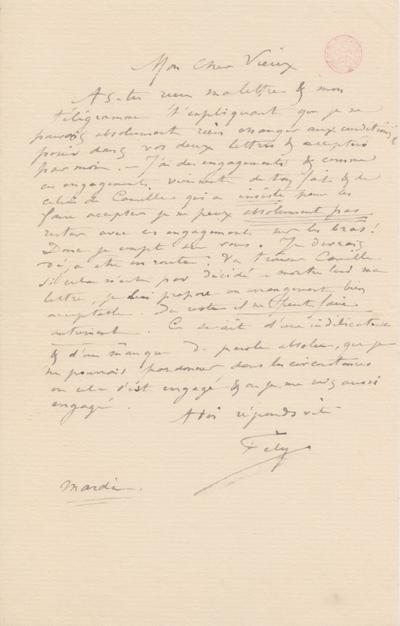 Mon Cher Vieux
As-tu reçu ma lettre & mon
télégramme t'expliquant que je ne
pouvais absolument rien changer aux conditions
posées dans vos deux lettres & acceptées
par moi. — J'ai des engagements & comme
ces engagements viennent de ton fait & de
celui de Camille qui a insisté pour les
faire accepter je ne peux absolument pas
rester avec ces engagements sur les bras!
Donc je compte sur vous. Je devrais
déjà être en route! Va trouver Camille
si cela n'est pas décidé – montre lui ma
lettre, je lui propose un arrangement bien
acceptable. Du reste il ne peut faire
autrement. Ce serait d'une indélicatesse
& d'un manque de parole absolu, que je
ne pourrais pardonner dans les circonstances
où cela s'est engagé & où je me suis aussi
engagé.
A toi réponds vite
Fély
mardi.